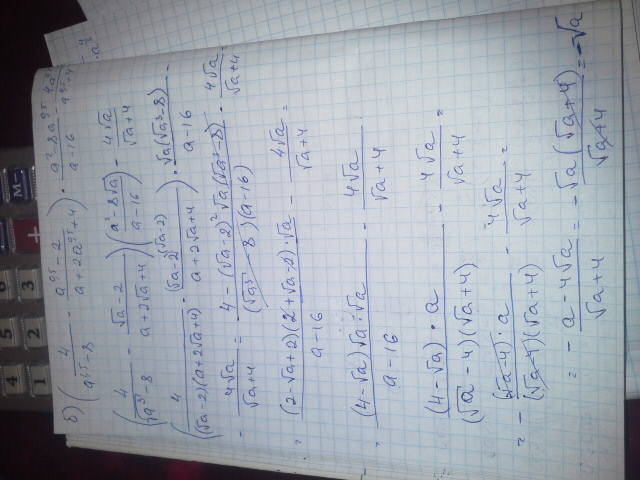 б) (4/(a^1,5 - 8) - (a^0,5 - 2)/(a + 2a^0,5 + 4)) · (a² - 8a^0,5)/(a - 16) - 4a^0,5/(a^0,5 + 4)
(4/(√a³ - 8) - (√a - 2)/(a + 2√a + 4)) (a² - 8√a)/(a - 16) - 4√a/(√a + 4)
(4/((√a - 2)(a + 2√a + 4)) - (√a - 2)(√a - 2)/(a + 2√a + 4)) · √a(√a³ - 8)/(a - 16) -
- 4√a/(√a + 4) = (4 - (√a - 2)² √a(√a³ - 8))/((√a³ - 8)(a - 16)) - 4√a/(√a + 4) =
= (2 - √a + 2)(2 + √a - 2) · √a/(a - 16) - 4√a/(√a + 4) =
= (4 - √a)√a · √a/(a - 16) - 4√a/(√a + 4)
= (4 - √a) · a/((√a - 4)(√a + 4)) - 4√a/(√a + 4) =
= - (√a - 4) · a/((√a - 4)(√a + 4)) - 4√a/(√a + 4) =
= - (a - 4√a)/(√a + 4) = - √a(√a + 4)/(√a + 4) = -√a
M-
+
6
5
4
3
2
1